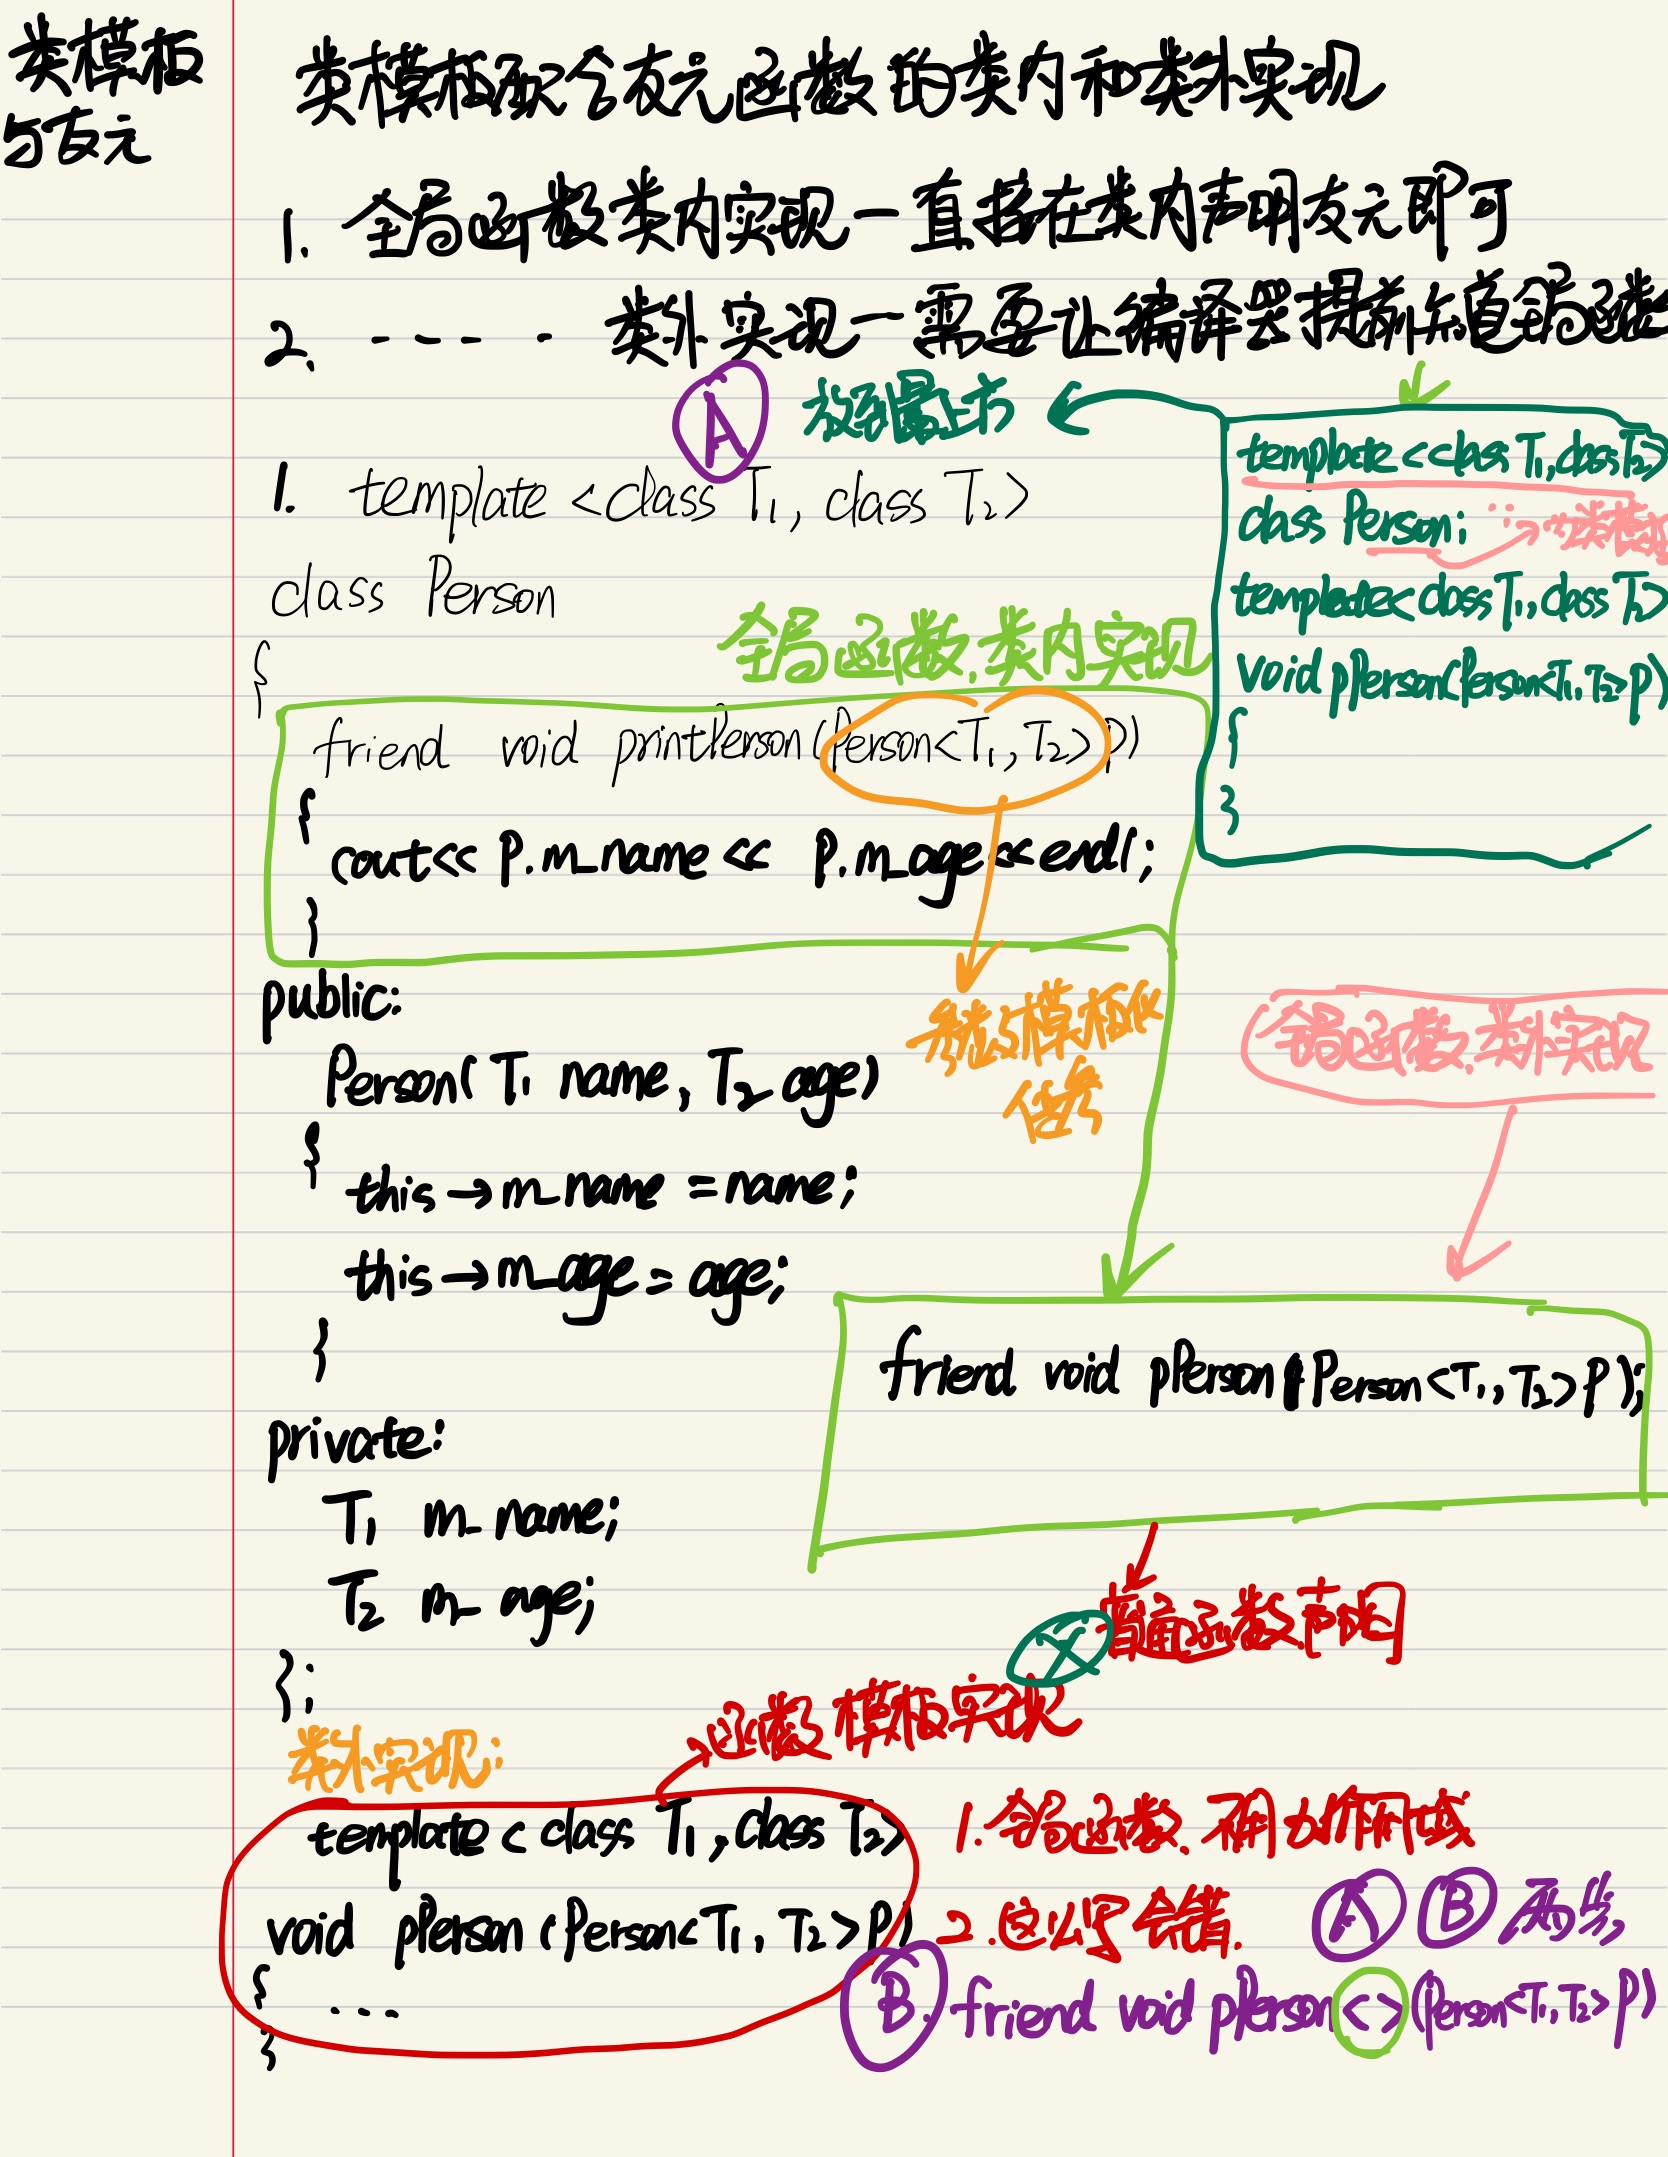 类模板
与友元
类模板配合友元函数的类内和类外实现
1. 全局函数类内实现 — 直接在类内声明友元即可
2. ----- 类外实现 — 需要让编译器提前知道全局函数
A
放到最上方
template<class T1, class T2>
class Person;
类模板
template<class T1, class T2>
void pPerson(Person<T1, T2> p)
{
}
1. template <class T1, class T2>
class Person
{
全局函数,类内实现
friend void printPerson(Person<T1, T2> p)
{
cout<< p.m_name << p.m_age<<endl;
}
public:
模板
传参
全局函数,类外实现
Person( T1 name, T2 age)
{
this→m_name = name;
this→m_age = age;
}
friend void pPerson(Person<T1, T2> p);
private:
T1 m_name;
T2 m_age;
};
普通函数声明
函数模板实现
类外实现:
template < class T1, class T2>
void pPerson (Person<T1, T2> p)
{
...
}
1. 全局函数,不用加作用域
2. 这么写会错. A B 两步
B. friend void pPerson<>(Person<T1, T2> p)